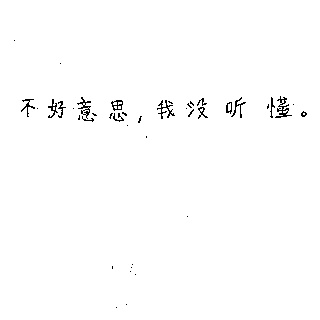 不好意思,我没听懂。